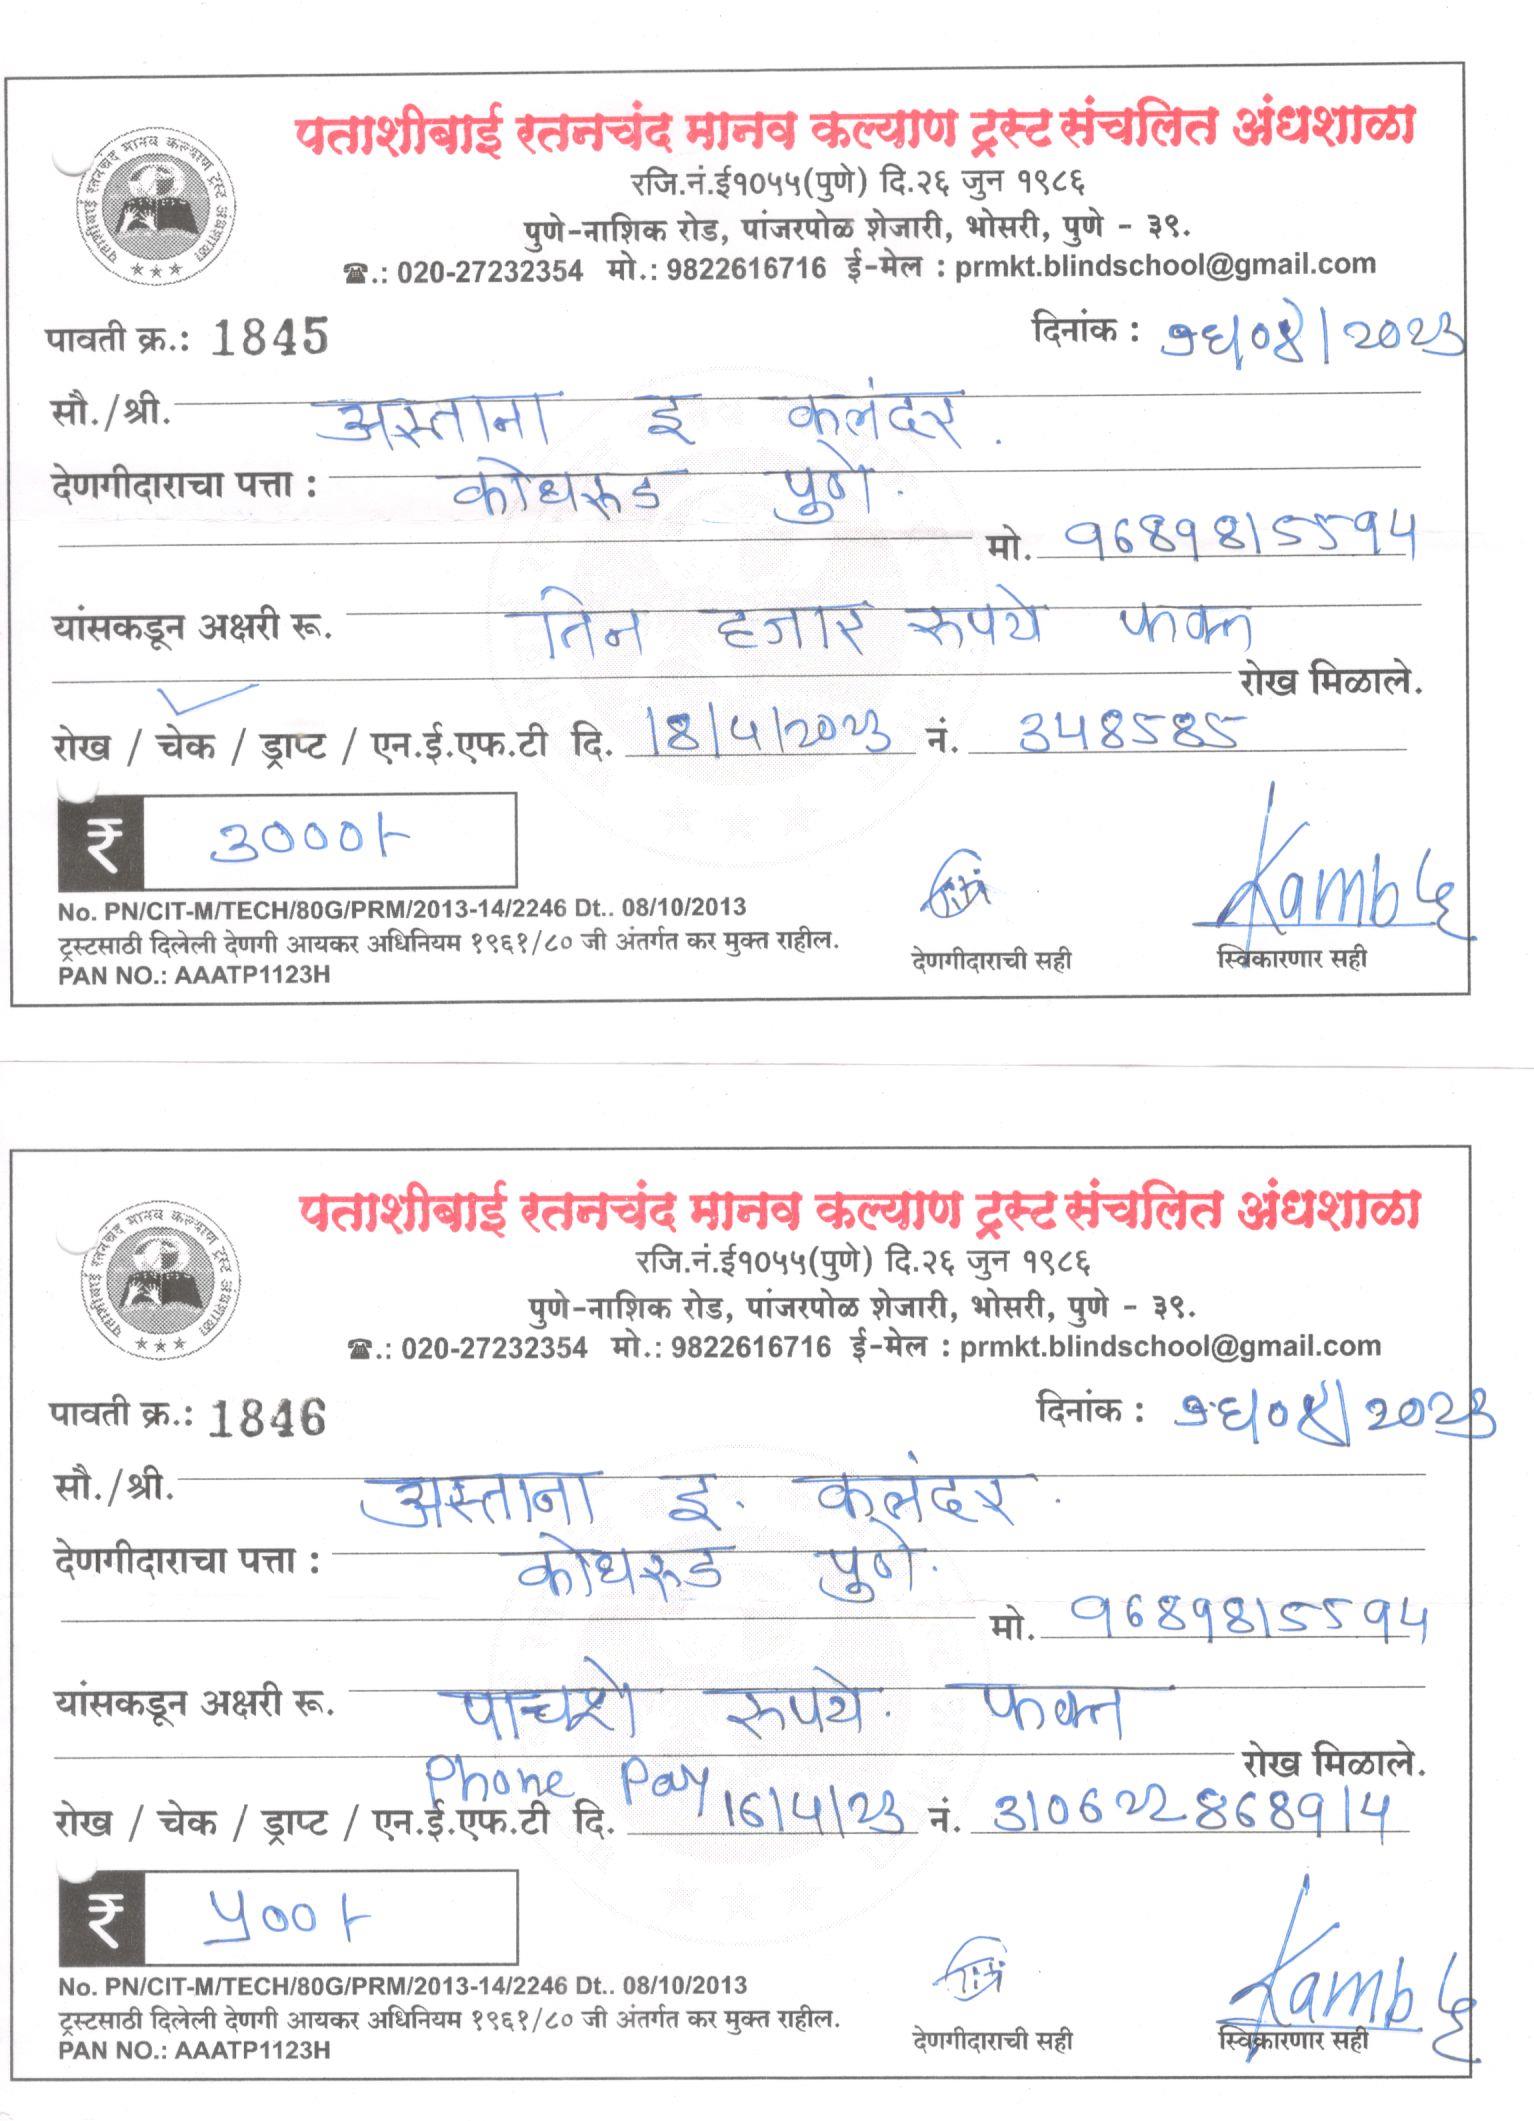 पताशीबाई रतनचंद मानव कल्याण ट्रस्ट संचलित अंधशाळा
रजि.नं.ई१०५५(पुणे) दि.२६ जुन १९८६
पुणे-नाशिक रोड, पांजरपोळ शेजारी, भोसरी, पुणे - ३९.
☎.: 020-27232354 मो.: 9822616716 ई-मेल : prmkt.blindschool@gmail.com
पावती क्र.: 1845 दिनांक : १६/०४/2023
सौ./श्री. अस्ताना इ कलंदर.
देणगीदाराचा पत्ता : कोथरुड पुणे.
मो. 9689815594
यांसकडून अक्षरी रू. तिन हजार रुपये फक्त
रोख मिळाले.
रोख / चेक / ड्राप्ट / एन.ई.एफ.टी दि. 18/4/2023 नं. 348585
₹ 3000/-
No. PN/CIT-M/TECH/80G/PRM/2013-14/2246 Dt.. 08/10/2013
ट्रस्टसाठी दिलेली देणगी आयकर अधिनियम १९६१/८० जी अंतर्गत कर मुक्त राहील.
PAN NO.: AAATP1123H
देणगीदाराची सही स्विकारणार सही
पताशीबाई रतनचंद मानव कल्याण ट्रस्ट संचलित अंधशाळा
रजि.नं.ई१०५५(पुणे) दि.२६ जुन १९८६
पुणे-नाशिक रोड, पांजरपोळ शेजारी, भोसरी, पुणे - ३९.
☎.: 020-27232354 मो.: 9822616716 ई-मेल : prmkt.blindschool@gmail.com
पावती क्र.: 1846 दिनांक : १६/०४/2023
सौ./श्री. अस्ताना इ. कलंदर.
देणगीदाराचा पत्ता : कोथरुड पुणे.
मो. 9689815594
यांसकडून अक्षरी रू. पाचशे रुपये. फक्त
रोख मिळाले.
Phone Pay
रोख / चेक / ड्राप्ट / एन.ई.एफ.टी दि. 16/4/23 नं. 310622868914
₹ ५00/-
No. PN/CIT-M/TECH/80G/PRM/2013-14/2246 Dt.. 08/10/2013
ट्रस्टसाठी दिलेली देणगी आयकर अधिनियम १९६१/८० जी अंतर्गत कर मुक्त राहील.
PAN NO.: AAATP1123H
देणगीदाराची सही स्विकारणार सही